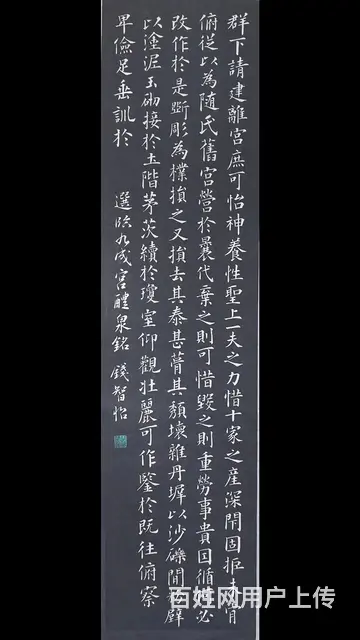 群下請建離宮庶可怡神養性聖上一夫之力惜十家之產深閇固拒未肯
俯從以為隨氏舊宮營於曩代棄之則可惜毀之則重勞事貴因循何必
改作於是斲彫為樸損之又損去其泰甚葺其頹壞雜丹墀以沙礫間粉壁
以塗泥玉砌接於土階茅茨續於瓊室仰觀壯麗可作鑒於既往俯察
卑儉足垂訓於
選臨九成宮醴泉銘 錢智怡
百姓网用户上传